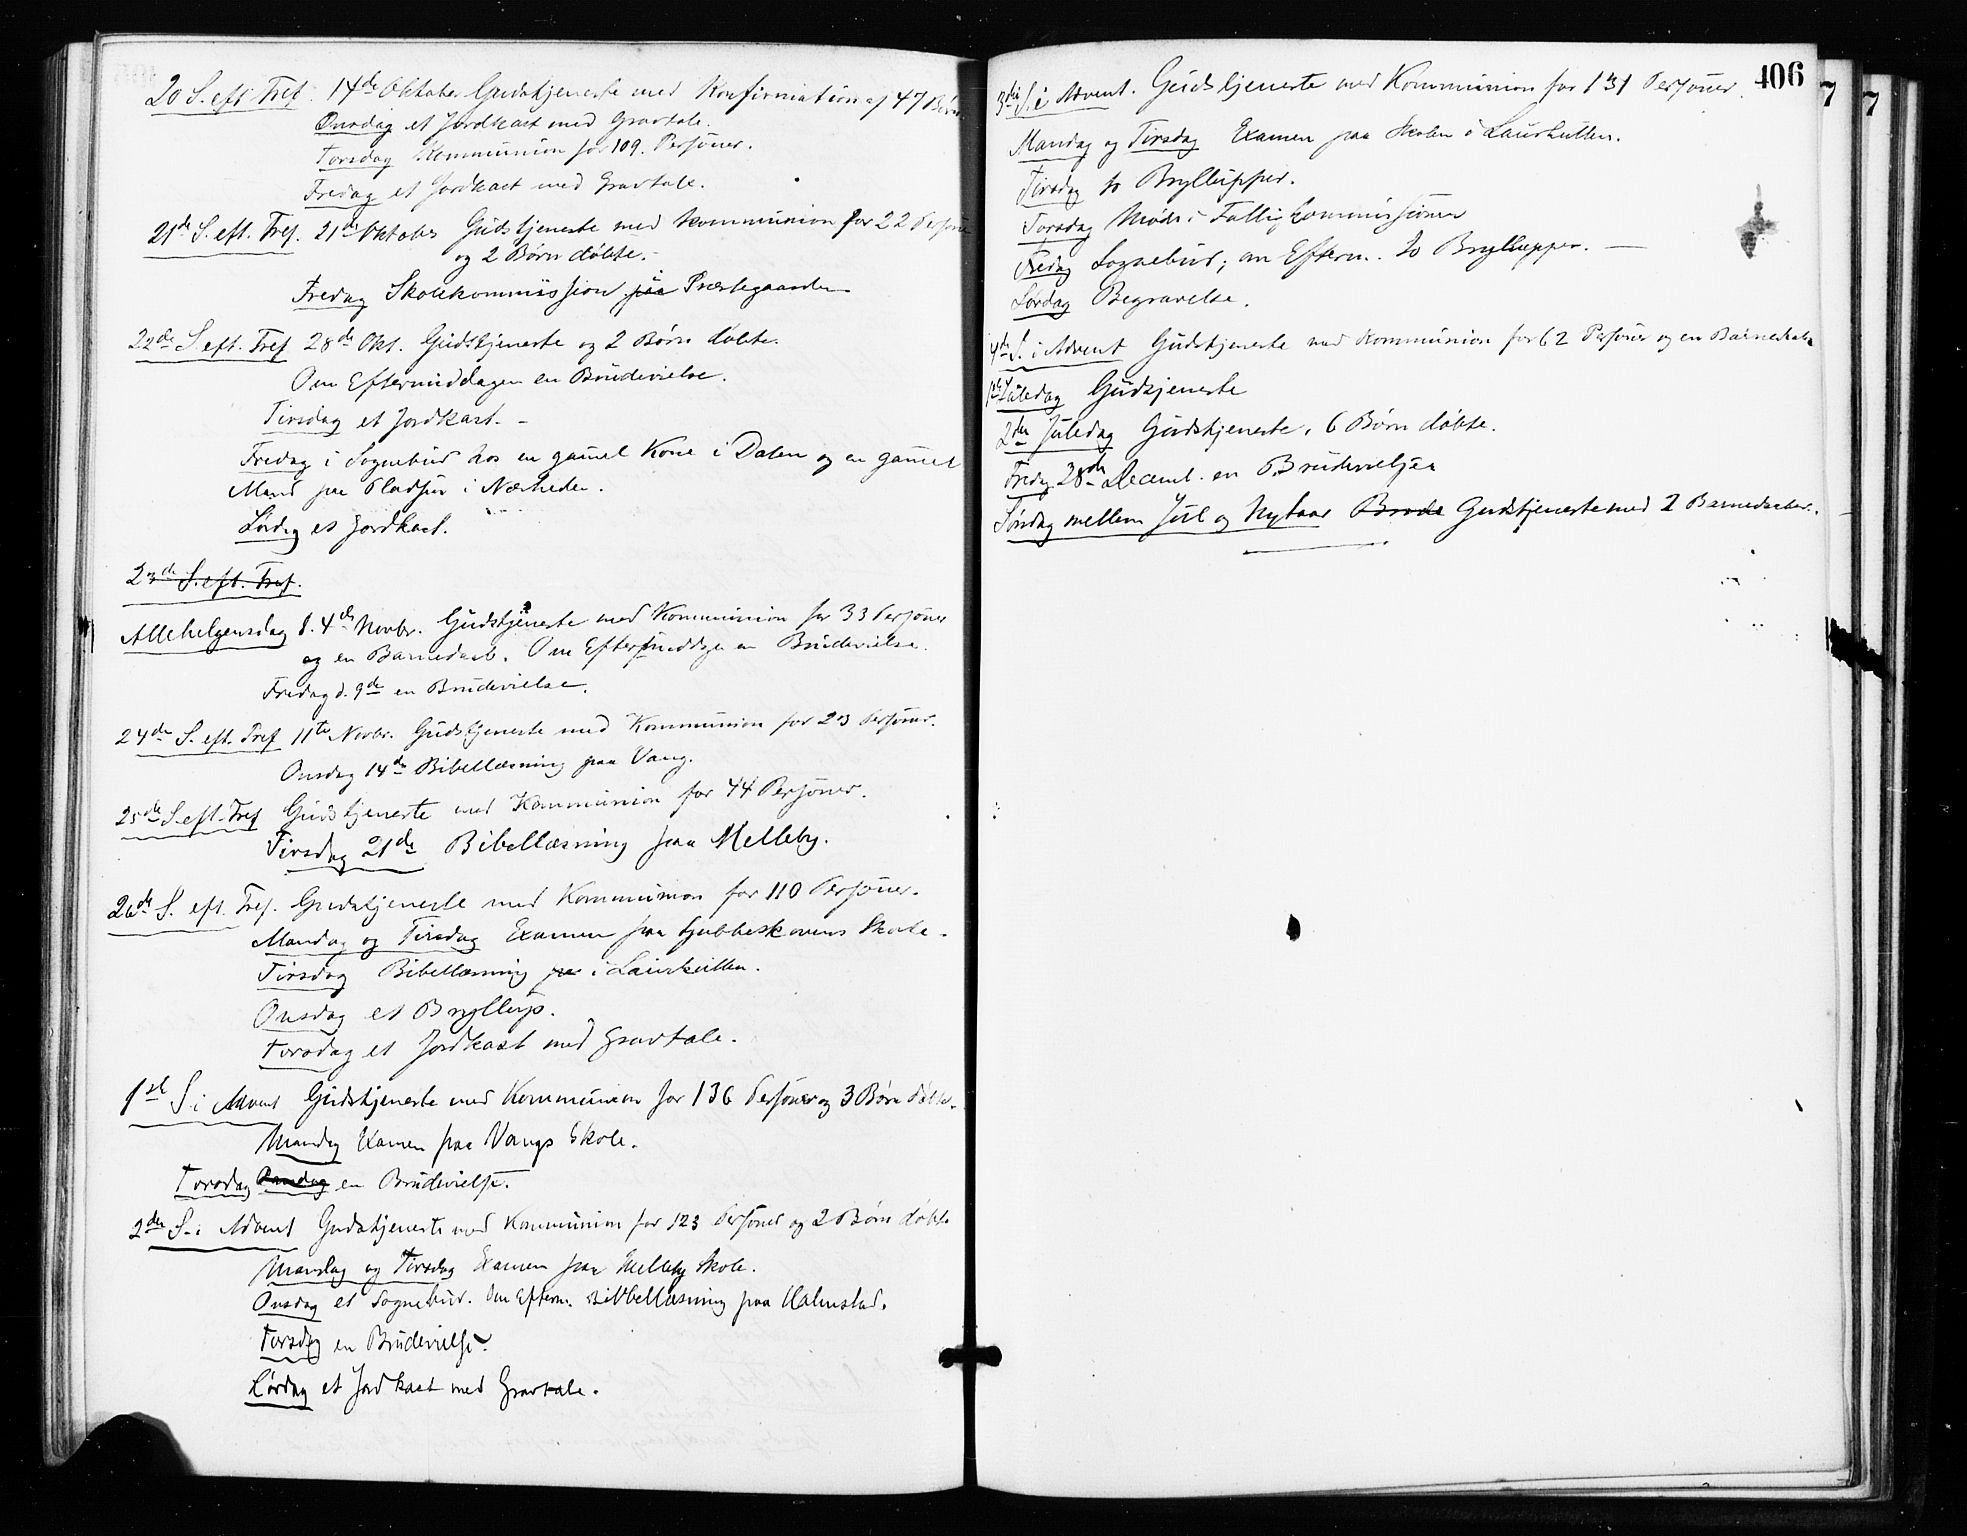 20 S. eft. Tref. 14de Oktober Gudstjeneste med Konfirmation af 47 Børn
Onsdag et Jordkast med Gravtale.
Torsdag Kommunion for 109. Personer.
Fredag et Jordkast med Gravtale.
21de S. eft. Tref. 21de Oktober Gudstjeneste med Kommunion for 22 Persone
og 2 Børn døbte.
Fredag Skolekommission paa i Præstegaarden
22de S. eft. Tref 28de Okt. Gudstjeneste og 2 Børn døbte.
Om Eftermiddagen en Brudevielse.
Tirsdag et Jordkast.
Fredag i Sognebud hos en gamel Kone i Dalen og en gamel
Mand paa Pladsen i Nærheden.
Lørdag et Jordkast.
23de S. eft. Tref.
Allehelgensdag d. 4de Novbr. Gudstjeneste med Kommunion for 33 Personer
og en Barnedaab. Om Eftermiddagen en Brudevielse.
Fredag d. 9de en Brudevielse.
24de S. eft. Tref 11te Novbr. Gudstjeneste med Kommunion for 23 Personer.
Onsdag 14de Bibellæsning paa Vang.
25de S. eft. Tref Gudstjeneste med Kommunion for 44 Personer.
Tirsdag 21de Bibellæsning paa Melleby.
26de S. eft. Tref. Gudstjeneste med Kommunion for 110 Personer.
Mandag og Tirsdag Examen paa Gubbeskovens Skole.
Tirsdag Bibellæsning paa i Laushutten.
Onsdag et Bryllup.
Torsdag et Jordkast med Gravtale.
1ste S. i Advent Gudstjeneste med Kommunion for 136 Personer og 3 Børn døbte.
Mandag Examen paa Vangs Skole.
Torsdag en Brudevielse.
2den S. i Advent Gudstjeneste med Kommunion for 123 Personer og 2 Børn døbte
Mandag og Tirsdag Examen paa Melleby Skole.
Onsdag et Sognebud. Om Efterm. Bibbellæsning paa Halmstad.
Torsdag en Brudevielse.
Lørdag et Jordkast med Gravtale.
406
7
7
3die S. i Advent. Gudstjeneste med Kommunion for 131 Personer.
Mandag og Tirsdag Examen paa Skolen i Laushutten.
Tirsdag to Bryllupper.
Torsdag Møde i Fattigkommissionen
Fredag Sognebud; om Efterm. to Bryllupper.
Lørdag Begravelse.
4de S. i Advent Gudstjeneste med Kommunion for 62 Personer og en Barnedaab
1ste Juledag Gudsjeneste
2den Juledag Gudstjeneste, 6 Børn døbte.
Fredag 28de Decemb. en Brudevielse
Søndag mellem Jul og Nytaar Brude Gudstjeneste med 2 Barnedaaber.